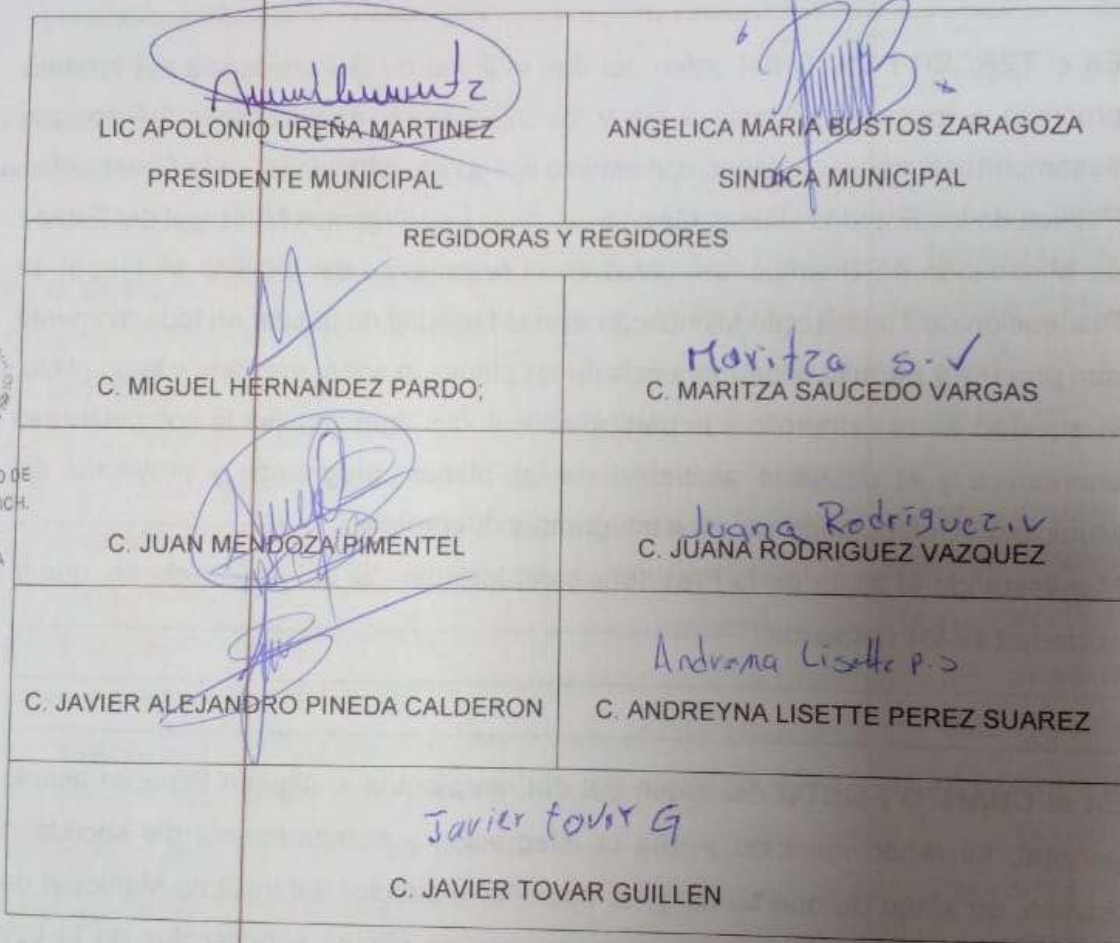 LIC APOLONIO UREÑA MARTINEZ
PRESIDENTE MUNICIPAL
ANGELICA MARIA BUSTOS ZARAGOZA
SINDICA MUNICIPAL
REGIDORAS Y REGIDORES
C. MIGUEL HERNANDEZ PARDO;
Maritza S. V
C. MARITZA SAUCEDO VARGAS
C. JUAN MENDOZA PIMENTEL
Juana Rodríguez. V
C. JUANA RODRIGUEZ VAZQUEZ
C. JAVIER ALEJANDRO PINEDA CALDERON
Lisette P. S
C. ANDREYNA LISETTE PEREZ SUAREZ
Javier tovar G
C. JAVIER TOVAR GUILLEN
O DE
ICH.